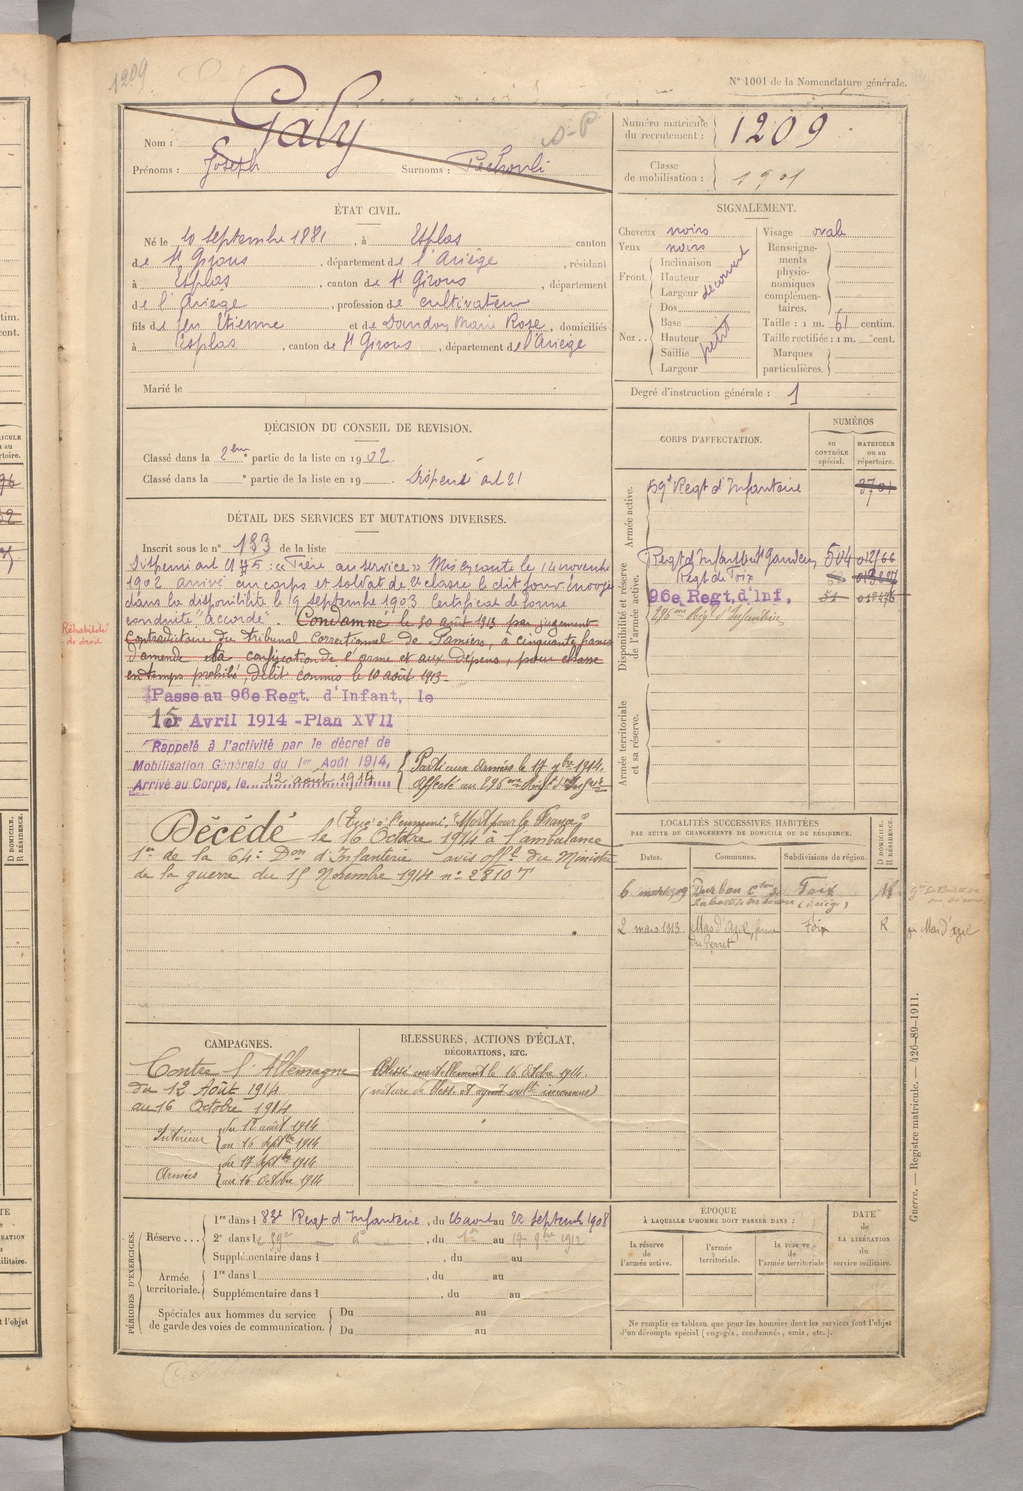 1209
N° 1001 de la Nomenclature générale.
Nom : Galy
S-P
Prénoms : Joseph Surnoms :
Numéro matricule du recrutement : 1209
Classe de mobilisation : 1901
ÉTAT CIVIL.
Né le 10 Septembre 1881, à Esplas canton
de St Girons, département de l'Ariège, résidant
à Esplas, canton de St Girons, département
de l'Ariège, profession de cultivateur
fils de feu Etienne et de Dandon Marie Rose, domiciliés
à Esplas, canton de St Girons, département de l'Ariège
Marié le
SIGNALEMENT.
Cheveux noirs Visage ovale
Yeux noirs
Front. Inclinaison Hauteur Largeur découvert
Nez.. Dos Base Hauteur Saillie Largeur petit
Renseignements physionomiques complémentaires.
Taille : 1 m. 61 centim.
Taille rectifiée : 1 m. cent.
Marques particulières.
Degré d'instruction générale : 1
DÉCISION DU CONSEIL DE REVISION.
Classé dans la 2ème partie de la liste en 1902.
Classé dans la ° partie de la liste en 19 Dispensé art 21
DÉTAIL DES SERVICES ET MUTATIONS DIVERSES.
Inscrit sous le n° 133 de la liste
Dispensé art 21 : « Frère au service » Mis en route le 14 novembre
1902 arrivé au corps et soldat de 2e classe le dit jour envoyé
dans la disponibilité le 19 septembre 1903 Certificat de bonne
conduite "accordé". Condamné le 30 août 1913 par jugement
contradictoire du tribunal Correctionnel de Pamiers, à cinquante francs
d'amende la confiscation de l'arme et aux dépens, pour chasse
en temps prohibé, délit commis le 10 août 1913
Réhabilité de droit
Passé au 96e Regt. d'Infant, le
15 Avril 1914 - Plan XVII
Rappelé à l'activité par le décret de
Mobilisation Générale du 1er Août 1914,
Arrivé au Corps, le 12 août 1914
Parti aux armées le 17 7bre 1914.
Affecté au 296ème Régt d'Infrie
(Tué à l'ennemi, "Mort pour la France")
Décédé le 16 Octobre 1914 à l'ambulance
1re de la 64e Don d'Infanterie avis offel du Ministre
de la guerre du 15 Novembre 1914 n° 2810 T
CORPS D'AFFECTATION.
NUMÉROS
au CONTRÔLE spécial.
MATRICULE ou au répertoire.
Armée active.
59e Regt d'Infanterie 3701
Disponibilité et réserve de l'armée active.
Regt d'Infanterie St Gaudens 504 012166
Regt de Foix
96e Regt, d'Inf, 51
296ème Régt d'Infanterie
Armée territoriale et sa réserve.
LOCALITÉS SUCCESSIVES HABITÉES
PAR SUITE DE CHANGEMENTS DE DOMICILE OU DE RÉSIDENCE.
Dates. Communes. Subdivisions de région. D DOMICILE. R RÉSIDENCE.
6 mars 1909 Durban Foix (Ariège)
2 mars 1913. Mas d'Azil, Foix R
Mas d'Azil
CAMPAGNES.
Contre l'Allemagne
du 12 Août 1914
au 16 Octobre 1914
Intérieur du 12 août 1914
au 16 septbre 1914
Armées du 17 septbre 1914
au 16 Octobre 1914
BLESSURES, ACTIONS D'ÉCLAT,
DÉCORATIONS, ETC.
Blessé mortellement le 16 octobre 1914.
(nature de bless. et agent vult inconnus)
PÉRIODES D'EXERCICES.
Réserve...
1re dans l 83e Regt d'Infanterie, du 26 août au 22 Septembre 1908
2e dans l e 59e do, du 1er au 17 9bre 1912
Supplémentaire dans l , du au
Armée territoriale.
1re dans l , du au
Supplémentaire dans l , du au
Spéciales aux hommes du service de garde des voies de communication. Du au
Du au
ÉPOQUE
À LAQUELLE L'HOMME DOIT PASSER DANS :
la réserve de l'armée active.
l'armée territoriale.
la réserve de l'armée territoriale
DATE de LA LIBÉRATION du service militaire.
Ne remplir ce tableau que pour les hommes dont les services font l'objet
d'un décompte spécial (engagés, condamnés, omis, etc.).
Guerre. — Registre matricule. — 426-89-1911.